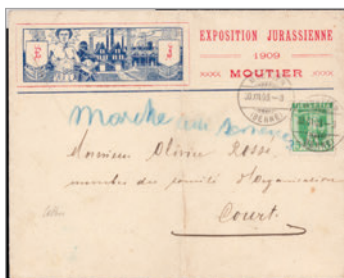 EXPOSITION JURASSIENNE
1909
MOUTIER
(BERNE)
Marche au
Monsieur Olivier Rossé
membre du comité d'Organisation
Court